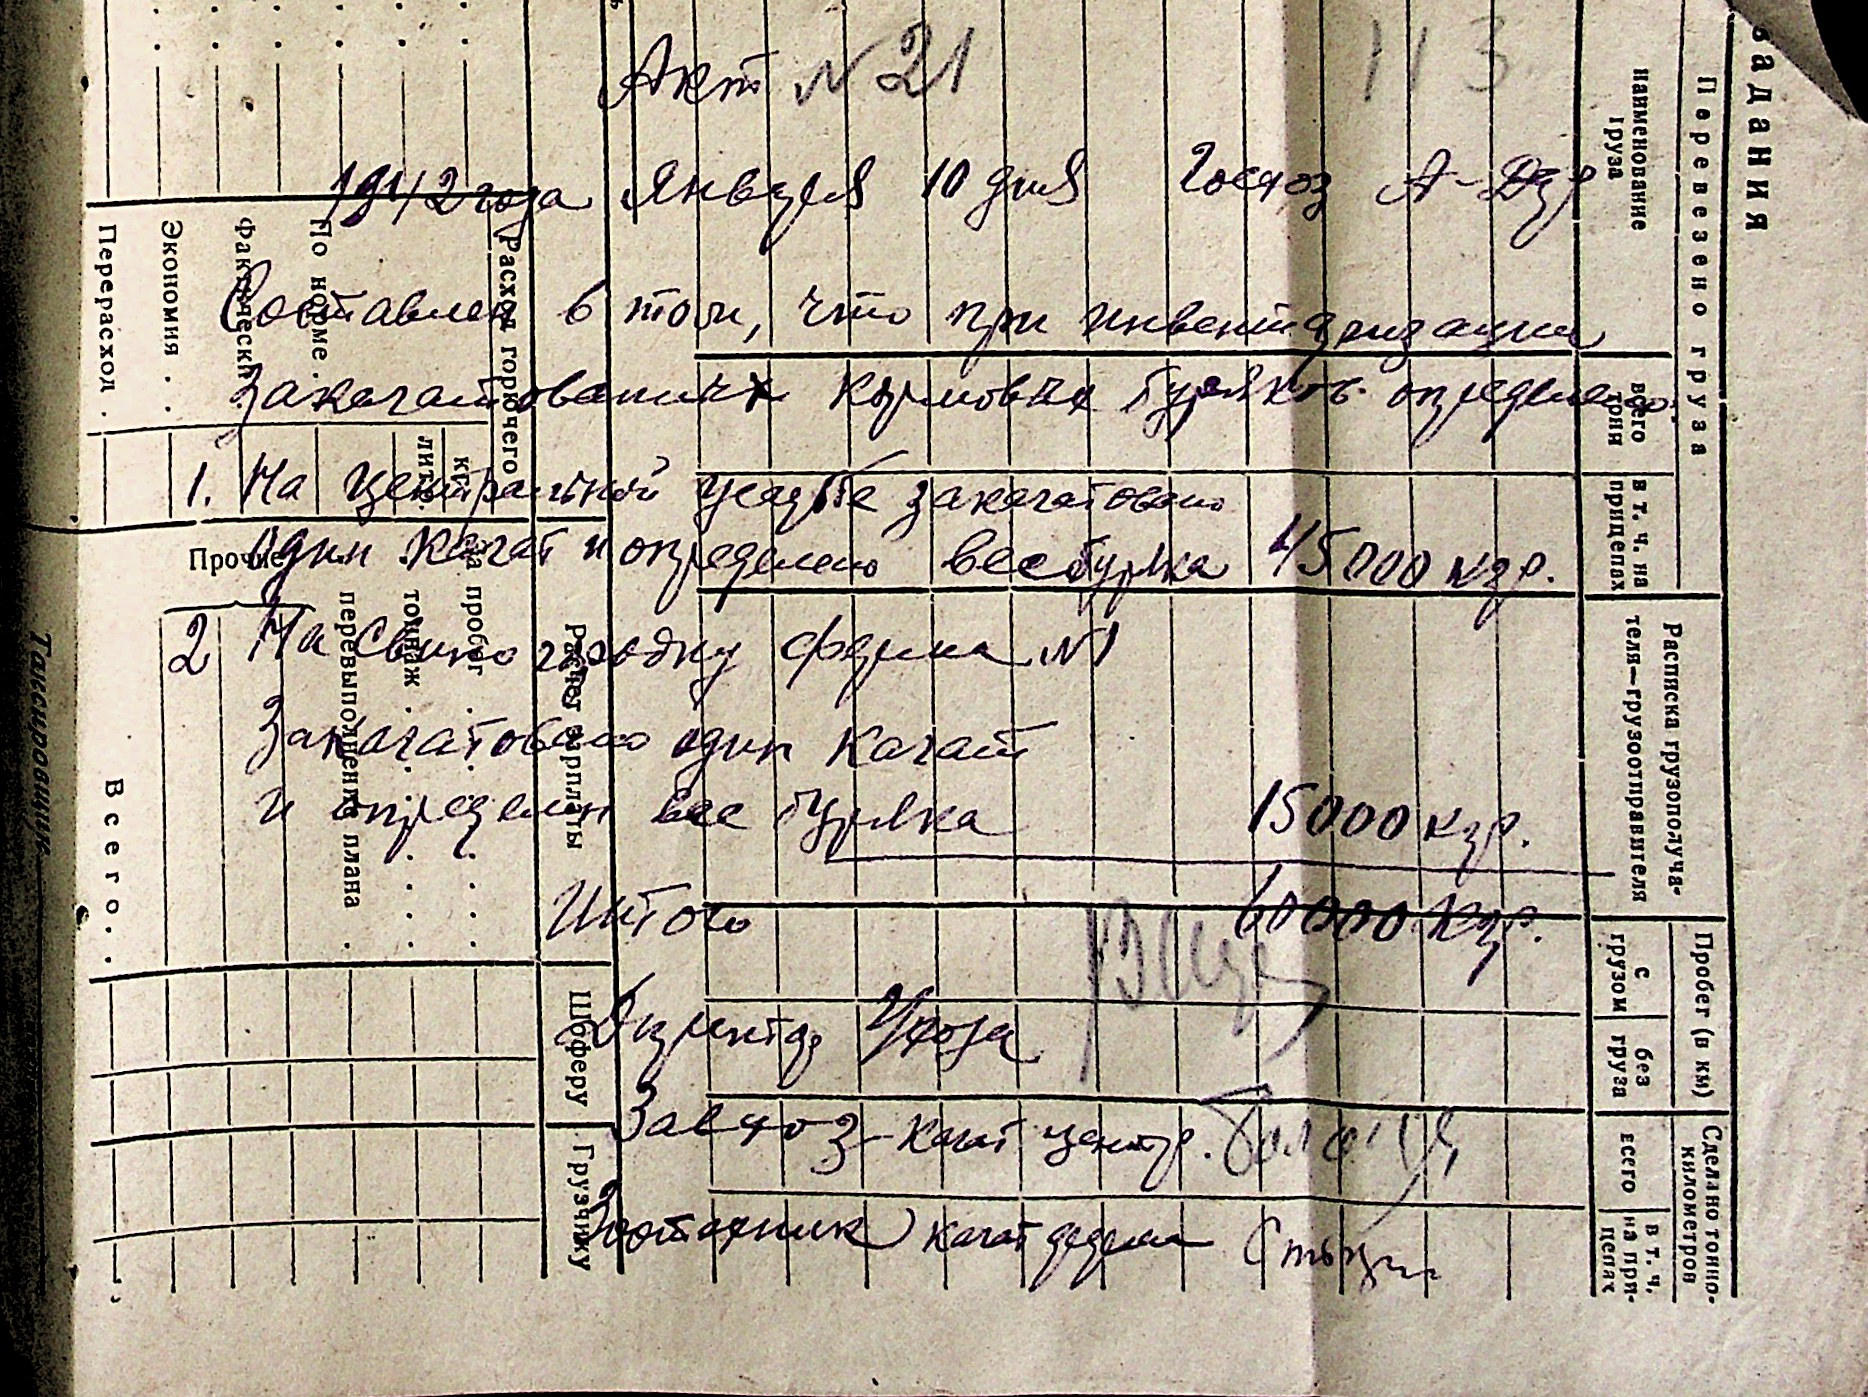 Акт N 21
113
1942 года Января 10 дня Госхоз А-Дзр
Составлен в том, что при инвентаризации
Закагатованных кормовых бураков определено:
1. На центральной усадбе закагатовано
один кагат и определено вес бурака 45000 кгр.
2 На Свино городку ферма N1
Закагатовано один кагат
и определен вес бурака 15000 кгр.
Интого 60000 кгр.
Директор Г/хоза
Завхоз - кагат центр.
Зоотехник кагат
задания
Перевезено груза
наименование груза
всего тонн
в т. ч. на прицепах
Расписка грузополуча-
теля—грузоотправителя
Пробег (в км)
с грузом
без груза
Сделано тонно-
километров
всего
в т. ч. на при-
цепах
Расход горючего
кг.
лит.
По норме
Фактически
Экономия
Перерасход
Расчет зарплаты
Шоферу
Грузчику
За пробег
тоннаж
перевыполнение плана
Прочие
Всего
Таксировщик